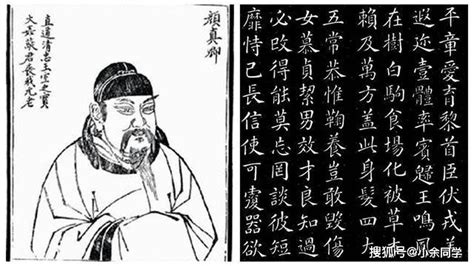 顏真卿
直道清忠王室之賓
平章愛育黎首臣伏戎羌
遐迩壹體率賓歸王鳴鳳
在樹白駒食場化被草木
賴及萬方蓋此身髮四大
五常恭惟鞠養豈敢毀傷
女慕貞潔男效才良知過
必改得能莫忘罔談彼短
靡恃己長信使可覆器欲
搜狐号@小余同学